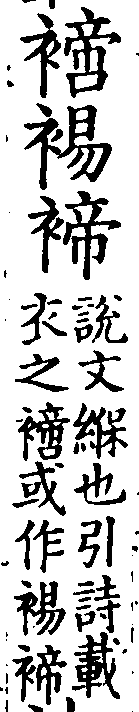 𧝐裼褅
說文緥也引詩載
衣之𧝐或作裼褅